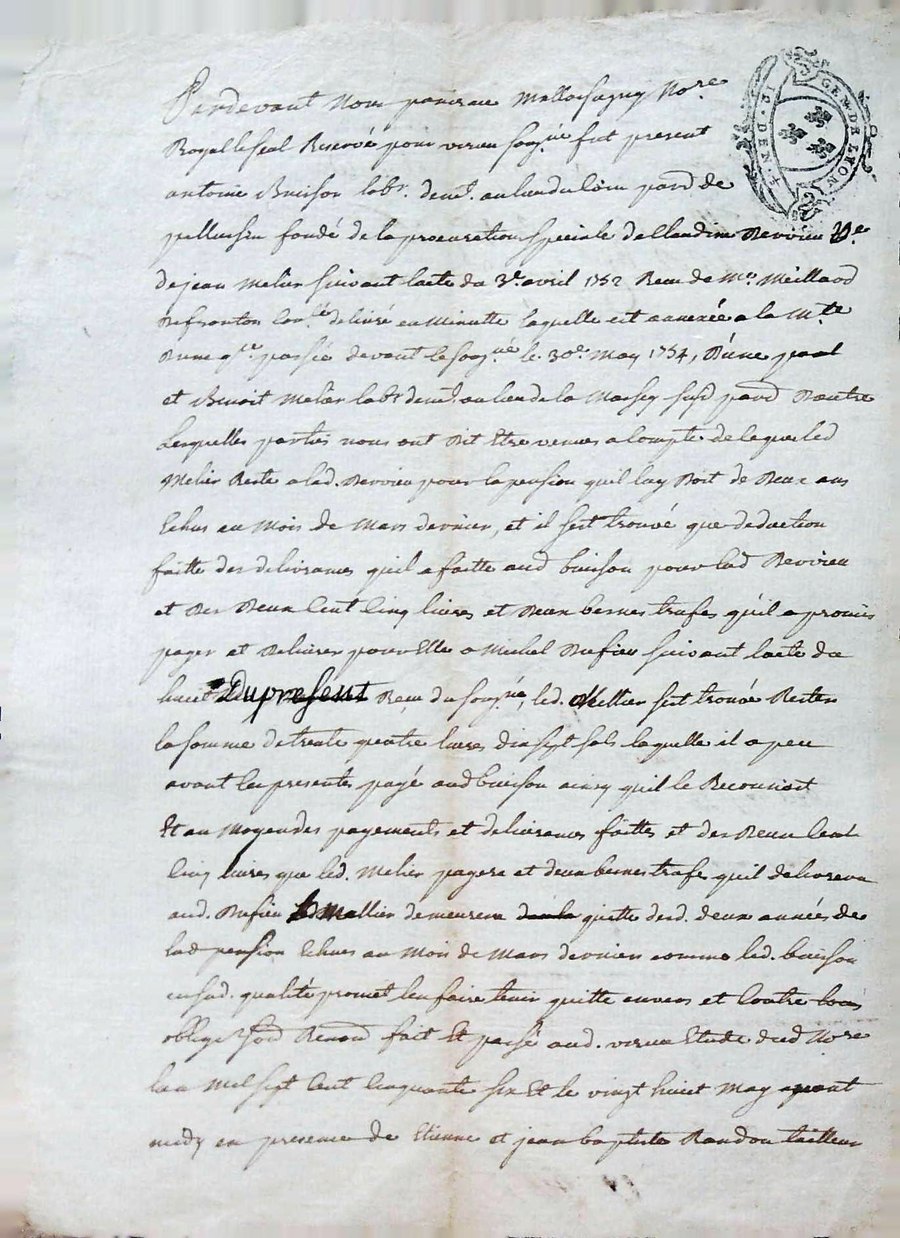 GEN. DE LYON
Pardevant Nous
Royal le seal Reservé pour virieu soug.né fut present
antoine Buisson lab.r dem.t au lieu du parr.d de
pellussin fondé de la procuration speciale de Claudine Bervieu V.e
de jean Melier suivant lacte du 3.e avril 1752 Receu de M.e Meillard
de livré en Minutte laquelle est annexée a la M.te
passée devant le soug.né le 30.e May 1754, D'une part
et Benoit Melier lab.r dem.t au lieu de la susd parr.d Dautre
Lesquelles parties nous ont Dit Etre venues a Compte de laque led
Melier Reste a lad. Bervieu pour la pension quil luy Doit de Deux ans
Echus au Mois de Mars dernier, et il sest trouvé que deduction
faitte des delivrances quil a faitte aud buisson pour lad Bervieu
et Des Deux Cent Cinq livres et Deux bennes trufes qu'il a promis
payer et Delivrer pour Elle a Michel Dufieu suivant lacte du
huict Du present Receu du soug.né, led. Mellier sest trouvé Rester
la somme de trente quatre livres dix sept sols laquelle il a peu
avant les presentes payé aud buisson ainsy quil le Reconnoit
Et au Moyen des payements et delivrances faittes et des Deux Cent
Cinq livres que led. Melier payera et deux bennes trufe quil delivrera
aud. Dufieu led Mallier demeurera quitte desd. deux années de
lad pension Echues au Mois de Mars dernier comme led. buisson
en sad. qualité promet len faire tenir quitte envers et Contre tous
oblige soud Renond fait Et passé aud. virieu Etude dud No.re
lan Mil sept Cent Cinquante six Et le vingt huict May avant
midy en presence de Etienne et jean baptiste Randon tailleur